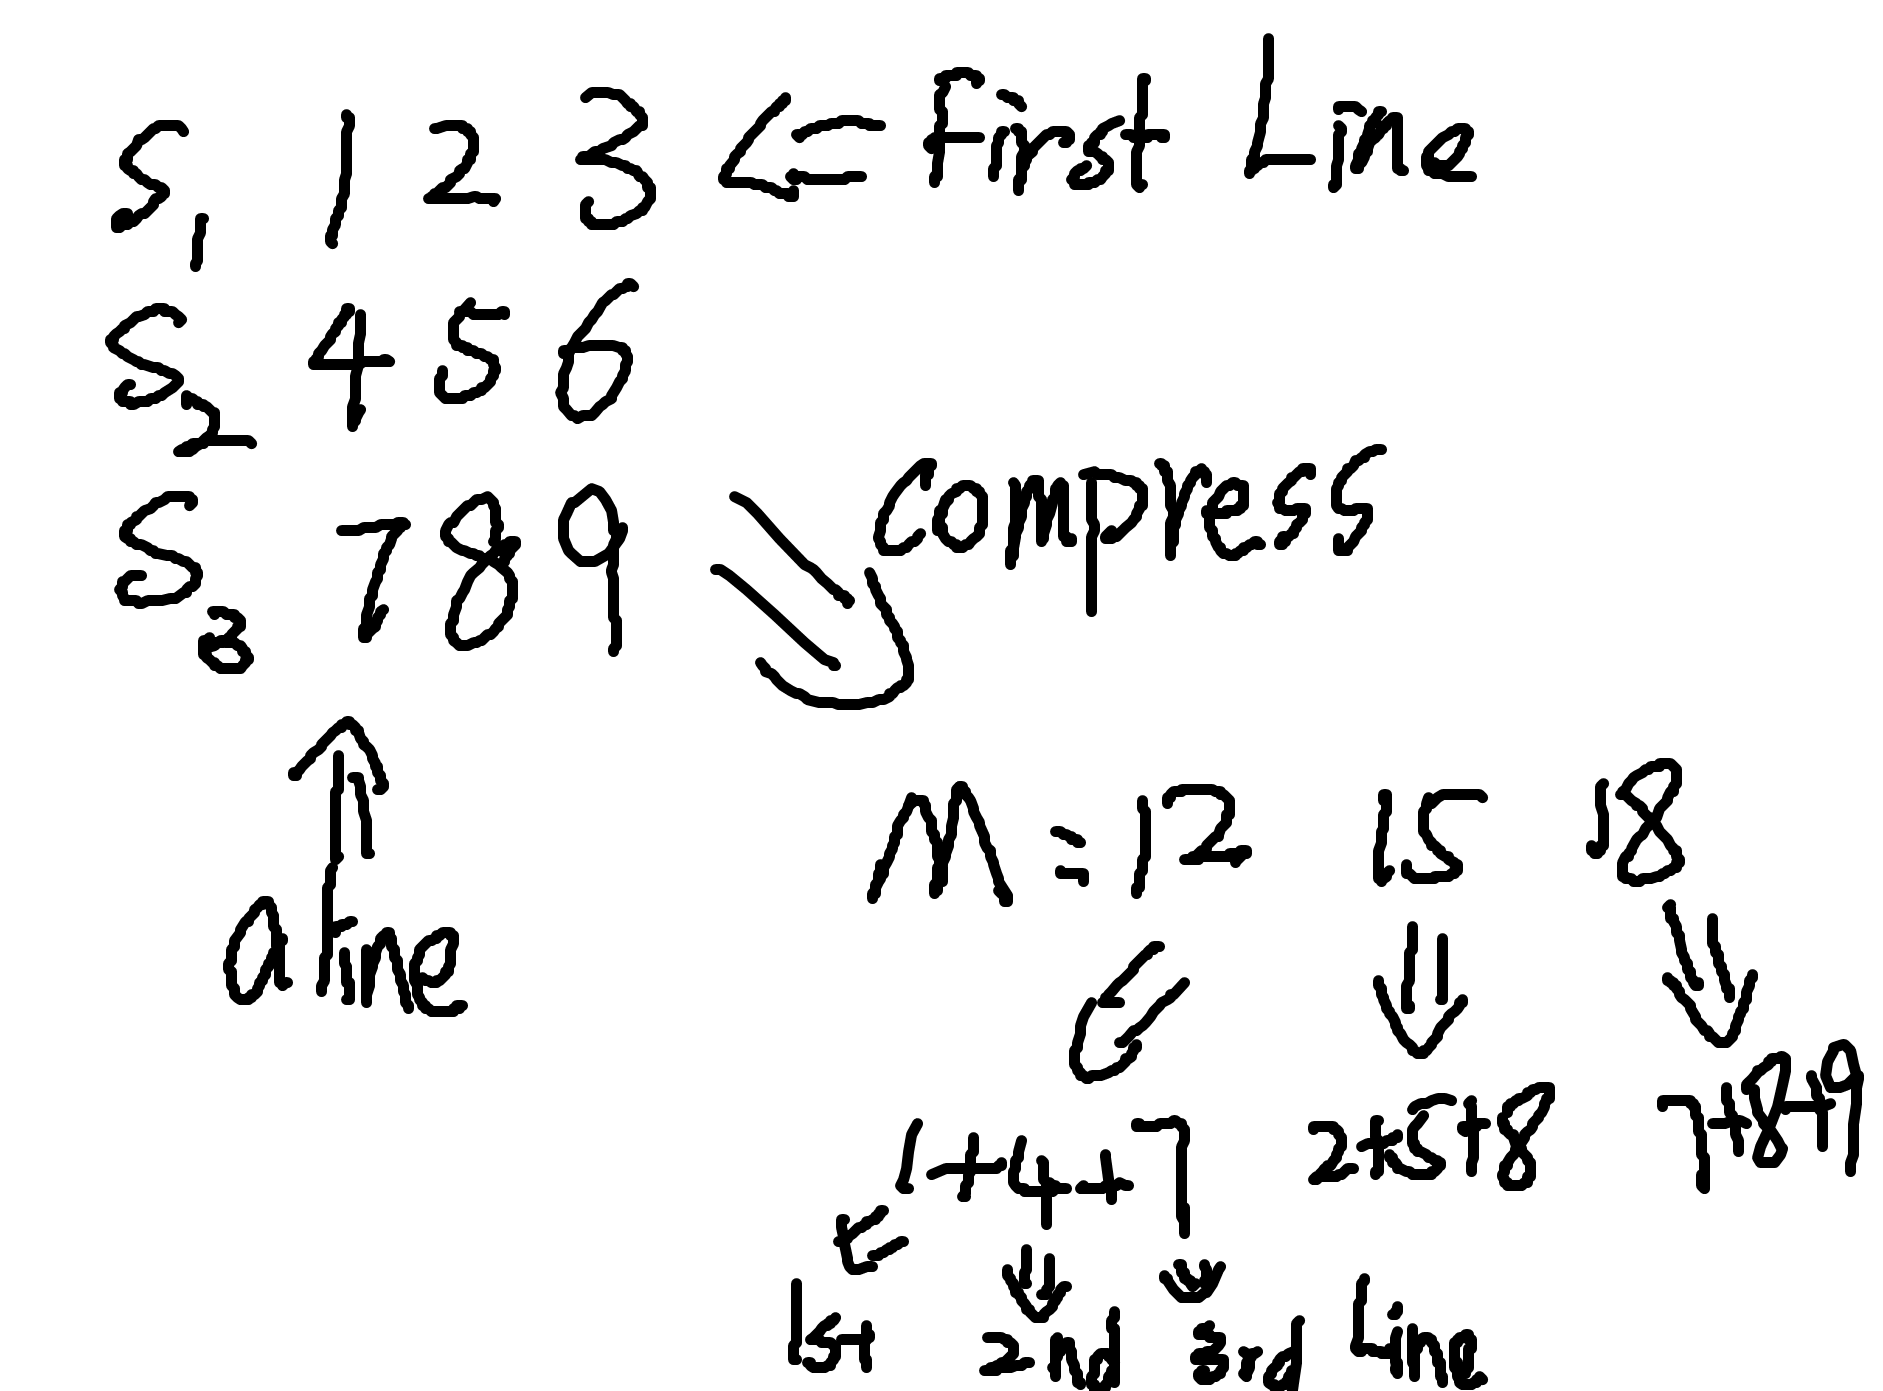 S₁ 1 2 3 <= First Line
S₂ 4 5 6
S₃ 7 8 9
compress
a line
M = 12 15 18
1+4+7 2+5+8 7+8+9
1st 2nd 3rd Line